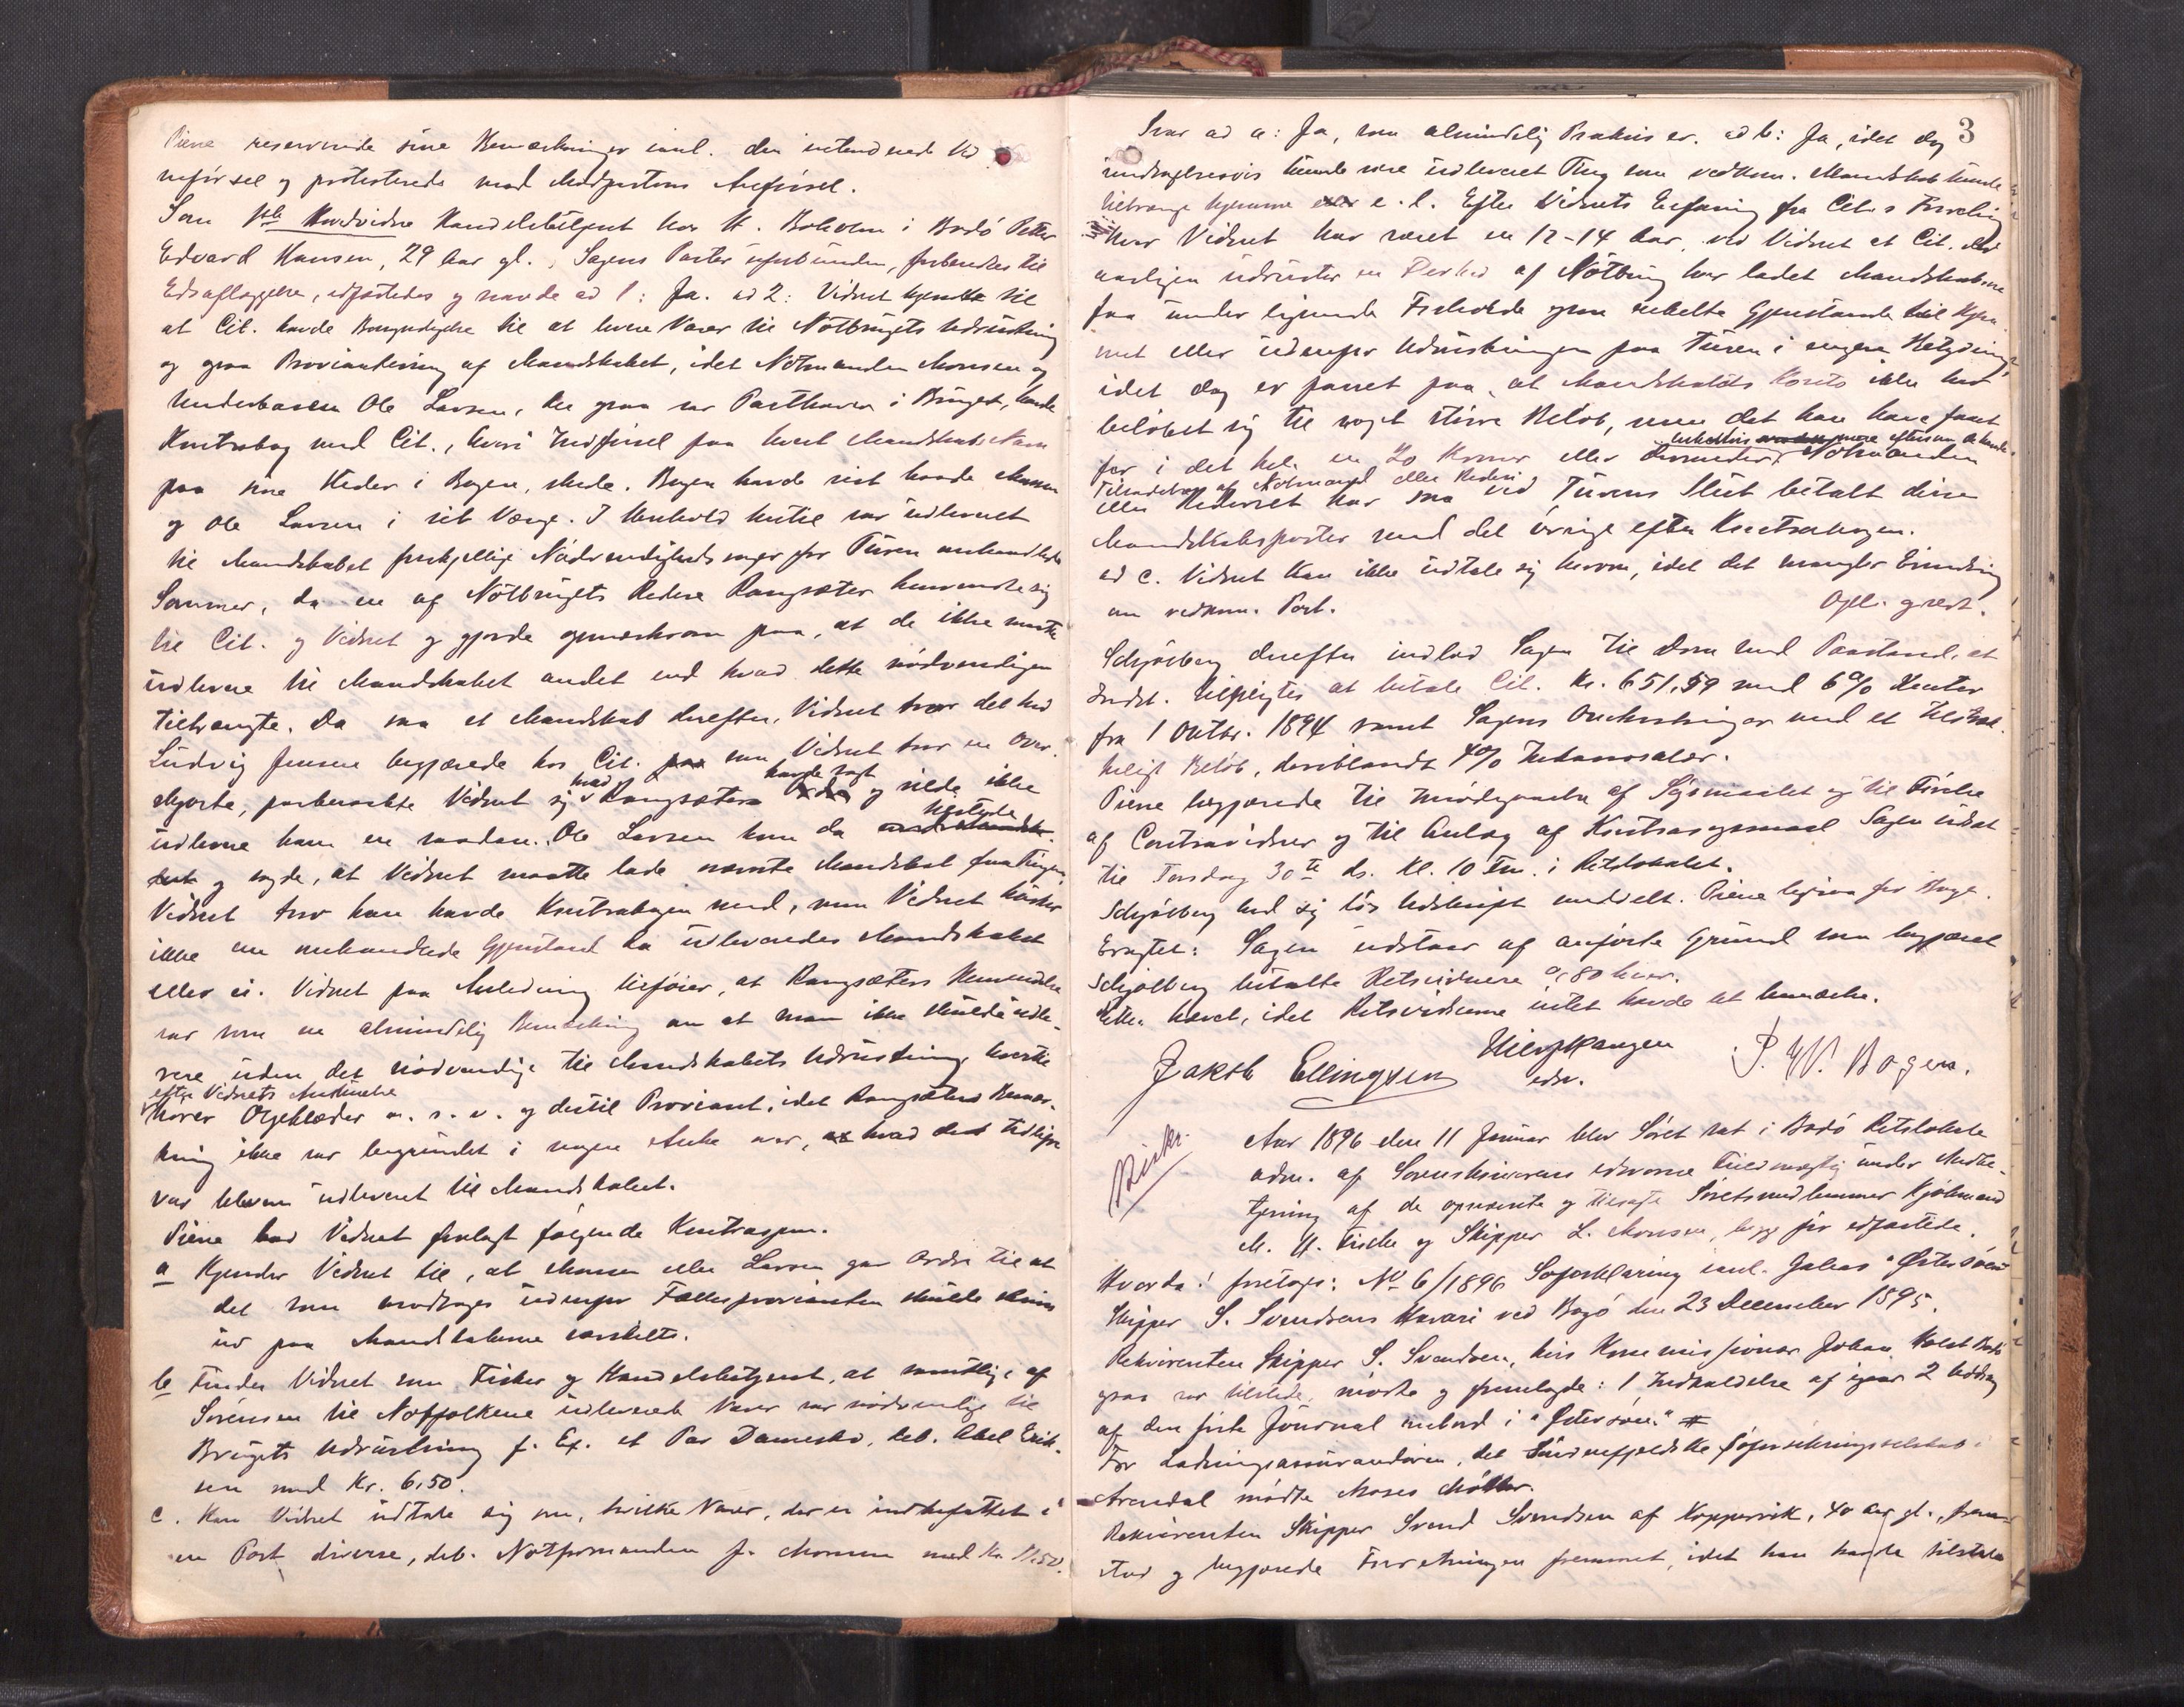 Piene reserverede sine Bemærkninger imod den intenderede Vid
neførsel og protesterede mod Modpartens Anførsel.
Som 1ste Hovedvidne Handelsbetjent hos H. Boholm i Bodö Petter
Edvard Hansen, 29 Aar gl., Sagens Parter uforbunden, forberedtes til
Edsaflæggelse, edfæstedes og svarede ad 1: Ja. ad 2: Vidnet kjendte til
at Cit. havde Bemyndigelse til at levere Varer til Nötbrugets Udrustning
og ogsaa Proviantering af Mandskabet, idet Notmanden Monsen og
Underbasen Ole Larsen, der ogsaa var Parthaver i Bruget, havde
Kontrabog med Cit., hvori Indførsel paa hvert Mandskabs Navn
paa sine Steder i Bogen, skede. Bogen havde vist baade Monsen
og Ole Larsen i sit Værge. I Henhold hertil var udleveret
til Mandskabet forskjellige Nødvendighedsvarer for Turen omhandlede
Sommer, da en af Nötbrugets Redere Rangsæter henvendte sig
til Cit. og Vidnet og gjorde opmærksom paa, at de ikke maatte
udlevere til Mandskabet andet end hvad dette nødvendigen
tiltrængte. Da saa et Mandskab derefter, Vidnet tror det hed
Ludvig Jensen begjærede hos Cit. som Vidnet tror en Over-
skjorte, paaberaabte Vidnet sig hvad Rangsæter havde sagt og vilde ikke
udlevere ham en saadan. Ole Larsen kom da tilstede
og sagde, at Vidnet maatte lade nævnte Mandskab faa Tingen,
Vidnet tror han havde Kontrabogen med, men Vidnet husker
ikke om omhandlede Gjenstand da udleveredes Mandskabet
eller ei. Vidnet paa Anledning tilføier, at Rangsæters Henvendelse
var som en almindelig Bemærkning om at man ikke skulde udle-
vere uden det nødvendige til Mandskabets Udrustning hvortil
efter Vidnets Mening
hører Oljeklæder o. s. v. og dertil Proviant, idet Rangsæters Bemær-
kning ikke var begrundet i nogen Anke over, hvad der tidligere
var bleven udleveret til Mandskabet.
Piene bad Vidnet forelagt følgende Kontraspm.
a Kjender Vidnet til, at Monsen eller Larsen gav Ordre til at
det som modtages udenfor Fællesprovianten skulde skrives
ud paa Mandskaberne særskilts.
b Finder Vidnet som Fisker og Handelsbetjent, at samtlige af
Sörensen til Notfolkene udleverede Varer var nødvendige til
Brugets Udrustning f. Ex. et Par Damesko, deb. Abel Erik-
sen med Kr. 6,50.
c. Kan Vidnet udtale sig om, hvilke Varer, der er indbefattet i
en Post diverse, deb. Notformanden J. Monsen med Kr. 11.50.
3
Svar ad a: Ja, som almindelig Praksis er. ad b: Ja, idet dog
undtagelsesvis kunde være udleveret Ting som vedkom. Mandskab kunde
tiltrænge hjemme e. l. Efter Vidnets Erfaring fra Cit.s Forretning
hvor Vidnet har været en 12-14 Aar, ved Vidnet at Cit. der
aarligen udruster en Del af Nötbrug har ladet Mandskaberne
faa under lignende Forholde ogsaa enkelte Gjenstande til Hjem
met eller udenfor Udrustningen paa Turen i engere Betydning,
idet dog er passet paa, at Mandskabets Konto ikke har
beløbet sig til noget større Beløb, men det kan have faaet
for i det hele en 20 Kroner eller derunder, enkeltvis mere eftersom de havde
Tilladelse af Notmand eller Rederi Notmanden
eller Rederiet har saa ved Turens Slut betalt disse
Mandskabsposter med det övrige efter Kontrabogen.
ad c. Vidnet kan ikke udtale sig herom, idet det mangler Erindring
om vedkom. Post. Opl. og vedt.
Schjølberg derefter indlod Sagen til Dom med Paastand, at
Indst. tilpligtes at betale Cit. Kr. 651,59 med 6% Renter
fra 1 Oktbr. 1894 samt Sagens Omkostninger med et tilstræk-
keligt Beløb, deriblandt 4% Inkassosalær.
Piene begjærede til Imødegaaelse af Søgsmaalet og til Førelse
af Contravidner og til Anlæg af Kontrasøgsmaal Sagen udsat
til Torsdag 30te ds. Kl. 10 Fm. i Retslokalet.
Schjølberg bad sig løs Udskrift meddelt. Piene ligesaa for Begge.
Eragtet: Sagen udstaar af anførte Grund som begjæret
Schjølberg betalte Retsvidnerne 0,80 hver.
Retten hævet, idet Retsvidnerne intet havde at bemærke.
Jakob Ellingsen
edsv.
P. W. Bogen.
Aar 1896 den 11 Januar blev Søret sat i Bodö Retslokale
adm. af Sorenskriverens edsvorne Fuldmægtig under Medbe-
tjening af de opnævnte og tilsagte Søretsmedlemmer Kjøbmand
M. H. Fische og Skipper L. Monsen, begge før edfæstede.
Hvorda! foretoges: No 6/1896 Søforklaring anl. Jakas "Østersøen"
Skipper S. Svendsens Havari ved Bogö den 23 December 1895.
Rekvirenten Skipper S. Svendsen, hvis Kommissionær Johan Koch Bodö
ogsaa var tilstede, mødte og fremlagde: 1 Indkaldelse af igaar 2 Uddrag
af den førte Journal ombord i "Østersøen."
For Ladningsassurandøren, det Söndenfjeldske Söforsikringsselskab i
Arendal mødte Moses Möller.
Rekvirenten Skipper Svend Svendsen af Koppervik, 40 Aar gl., frem-
stod og begjærede Forretningen fremmet, idet han havde tilstede